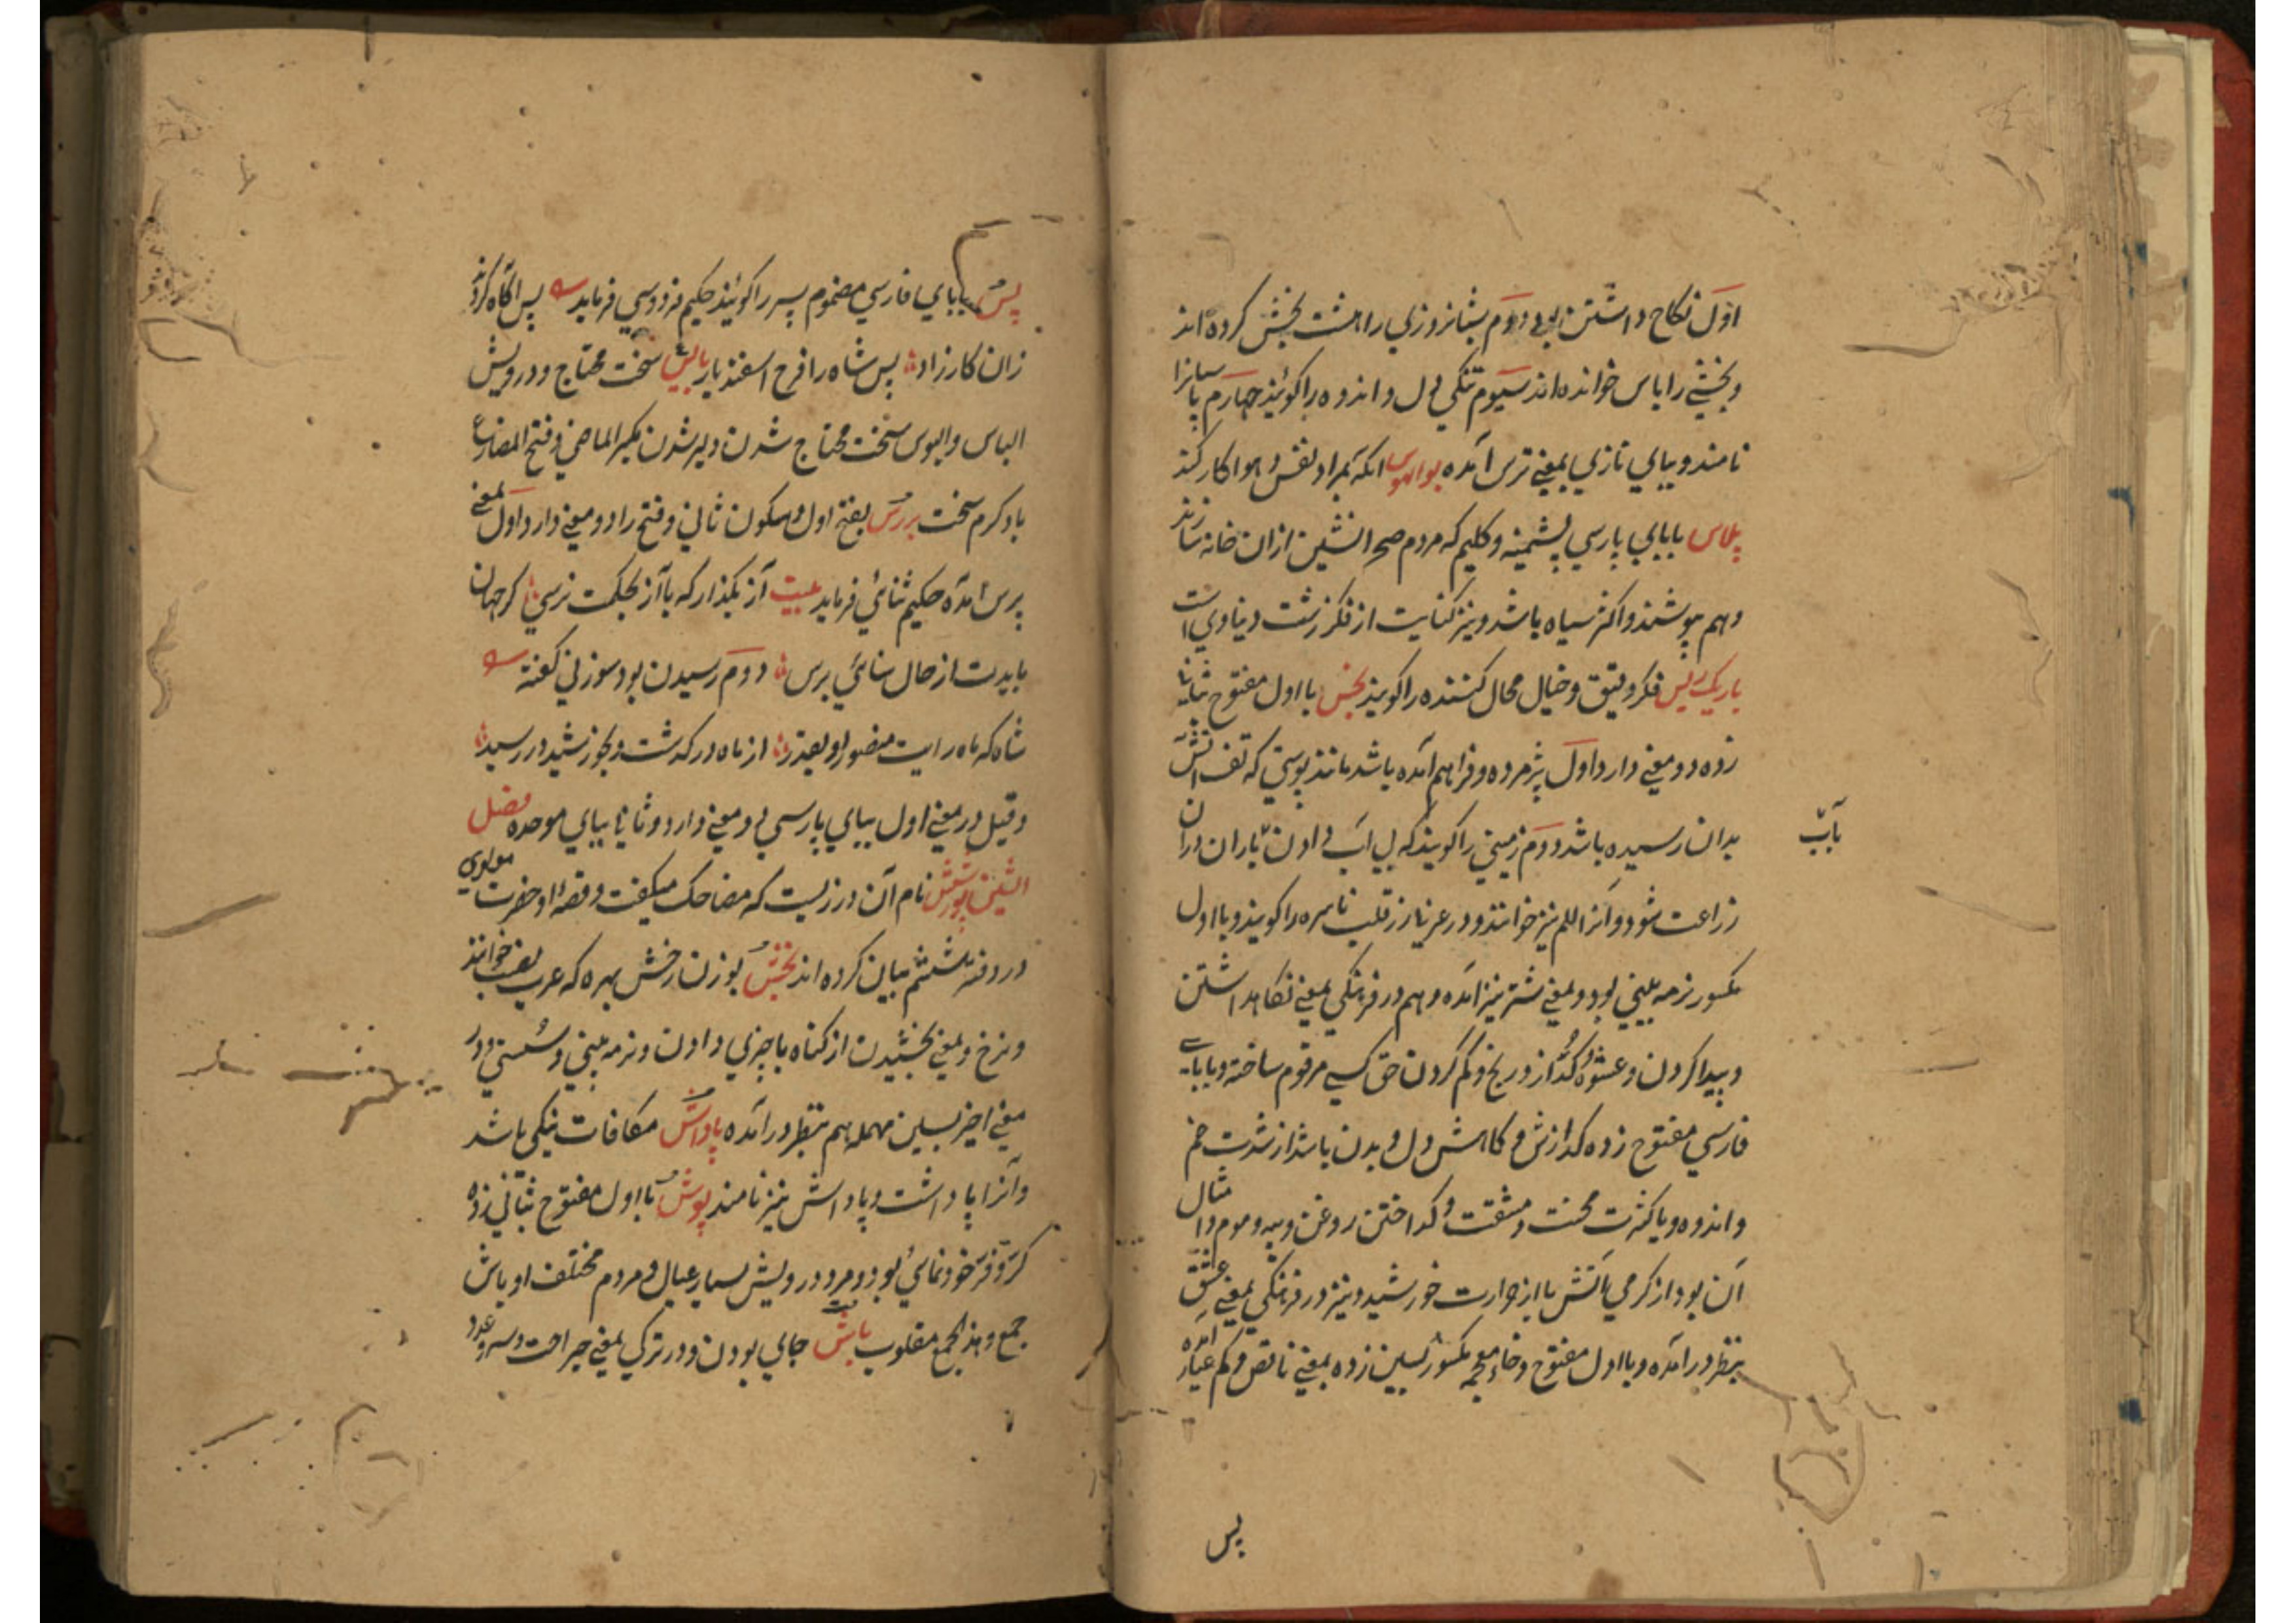 اول نکاح داشتن بود دوم شبانروزی را هشت بخش کرده اند
و بخشی را پاس خوانده اند سیوم تنگی دل و اندوه را کویند چهارم پاسبانرا
نامند و ببای تازی بمعنی ترس آمده بوالهوس آنکه بمراد نفس و هوا کار کند
پلاس بابای پارسی پشمینه و کلیم که مردم صحرا نشین ازان خانه سازند
و هم پوشند و اکثر سیاه باشد و نیز کنایت از فکر زشت دنیاوی است
باریک ریس فکر دقیق و خیال محال کننده را کویند بخس با اول مفتوح بثانی
زده دو معنی دارد اول پژمرده و فراهم آمده باشد مانند پوستی که تف آتش
بدان رسیده باشد دوم زمینی را کویند که بی آب دادن بباران دران
باب
زراعت شود و آنرا للم نیز خوانند و در عربی زر قلب ناسره را کویند و با اول
مکسور نرمه بینی بود و بمعنی شتر نیز آمده و هم در فرهنگی بمعنی نکاهداشتن
و پیدا کردن و عشوه و کداز و ریخ و کم کردن حق کسی مرقوم ساخته و بابای
فارسی مفتوح زده کدازش و کاهش دل و بدن باشد از شدت غم
و اندوه و یا کثرت محنت و مشقت و کداختن روغن و پیه و موم و امثال
آن بود از کرمی آتش یا از حرارت خورشید و نیز در فرهنگی بمعنی عشق
بنظر در آمده و با اول مفتوح و خاء معجمه مکسور بسین زده بمعنی ناقص و کم عیار آمده
پس
پس بابای فارسی مضموم پسر را کویند حکیم فردوسی فرماید پس آکاه کردند
زان کارزاد پس شاه را فرخ اسفندیار بایس سخت محتاج و درویش
الباس والبوس سخت محتاج شدن و لیر شدن بکسر الماضی و فتح المضارع
باد کرم سخت بررس بفتح اول و سکون ثانی و فتح را دو معنی دارد اول بمعنی
پرس آمده حکیم ثنائی فرماید بیت آز بکذار که با آز بحکمت نرسی کر جهان
بایدت از حال سنائی بررس دوم رسیدن بود سوزنی کفته
شاه که ماه رایت منصور او بقدر از ماه در کذشت و بخورشید در رسید
و قیل در معنی اول ببای پارسی دو معنی دارد و ثانیا ببای موحده فصل
الشین پورشش نام آن درزیست که مضاحک میکفت و قصهٔ او حضرت مولوی
در دفتر ششم بیان کرده اند بخش بوزن رخش بهره که عرب نصیب خوانند
و برخ و بمعنی بخشیدن از کناه یا چیزی دادن و نرمه بینی و سستی و در
معنی اخیر بسین مهمله هم بنظر در آمده پاداش مکافات نیکی باشد
و آنرا پاداشت و پاداشن نیز نامند پوش با اول مفتوح بثانی زده
کر و فر خودنمائی بود و مرد درویش بسیار عیال و مردم مختلف اوباش
جمع و هذا الجمع مقلوب باش جای بودن و در ترکی بمعنی جراحت و سر و غدد